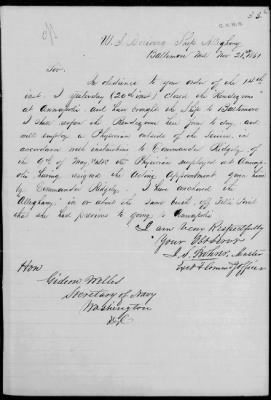 U. S. Receiving Ship Allegheny
Baltimore Md Nov 21st 1861
Sir.
In obedience to your order of the
inst. I yesterday (20th inst) closed the Rendezvous
at Annapolis and have brought the Ship to Baltimore
I shall reopen the Rendezvous here to day, and
will employ a Physician outside of the service, in
accordance with instructions to Commander
of the 6th of May, the Physician employed at Annap-
olis having resigned the acting appointment given him
by Commander. I have anchored the
Allegheny in or about the same berth off Fells Point
that she had previous to going to Annapolis
I am Very Respectfully
Your Obt Servt
Hon
Gideon Welles
Secretary of Navy
Washington
D.C.